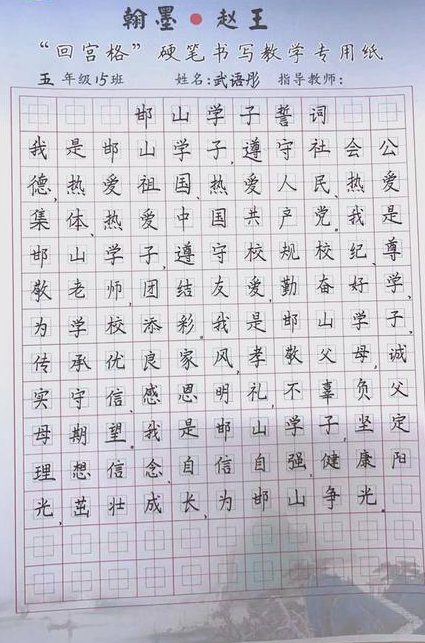 翰墨●赵王
“回宫格”硬笔书写教学专用纸
五年级15班 姓名:武语彤 指导教师:
邯山学子誓词
我是邯山学子,遵守社会公
德,热爱祖国、热爱人民、热爱
集体、热爱中国共产党。我是
邯山学子,遵守校规校纪、尊
敬老师,团结友爱,勤奋好学,
为学校添彩。我是邯山学子,
传承优良家风,孝敬父母,诚
实守信、感恩明礼,不辜负父
母期望。我是邯山学子,坚定
理想信念,自信自强,健康阳
光,茁壮成长,为邯山争光。